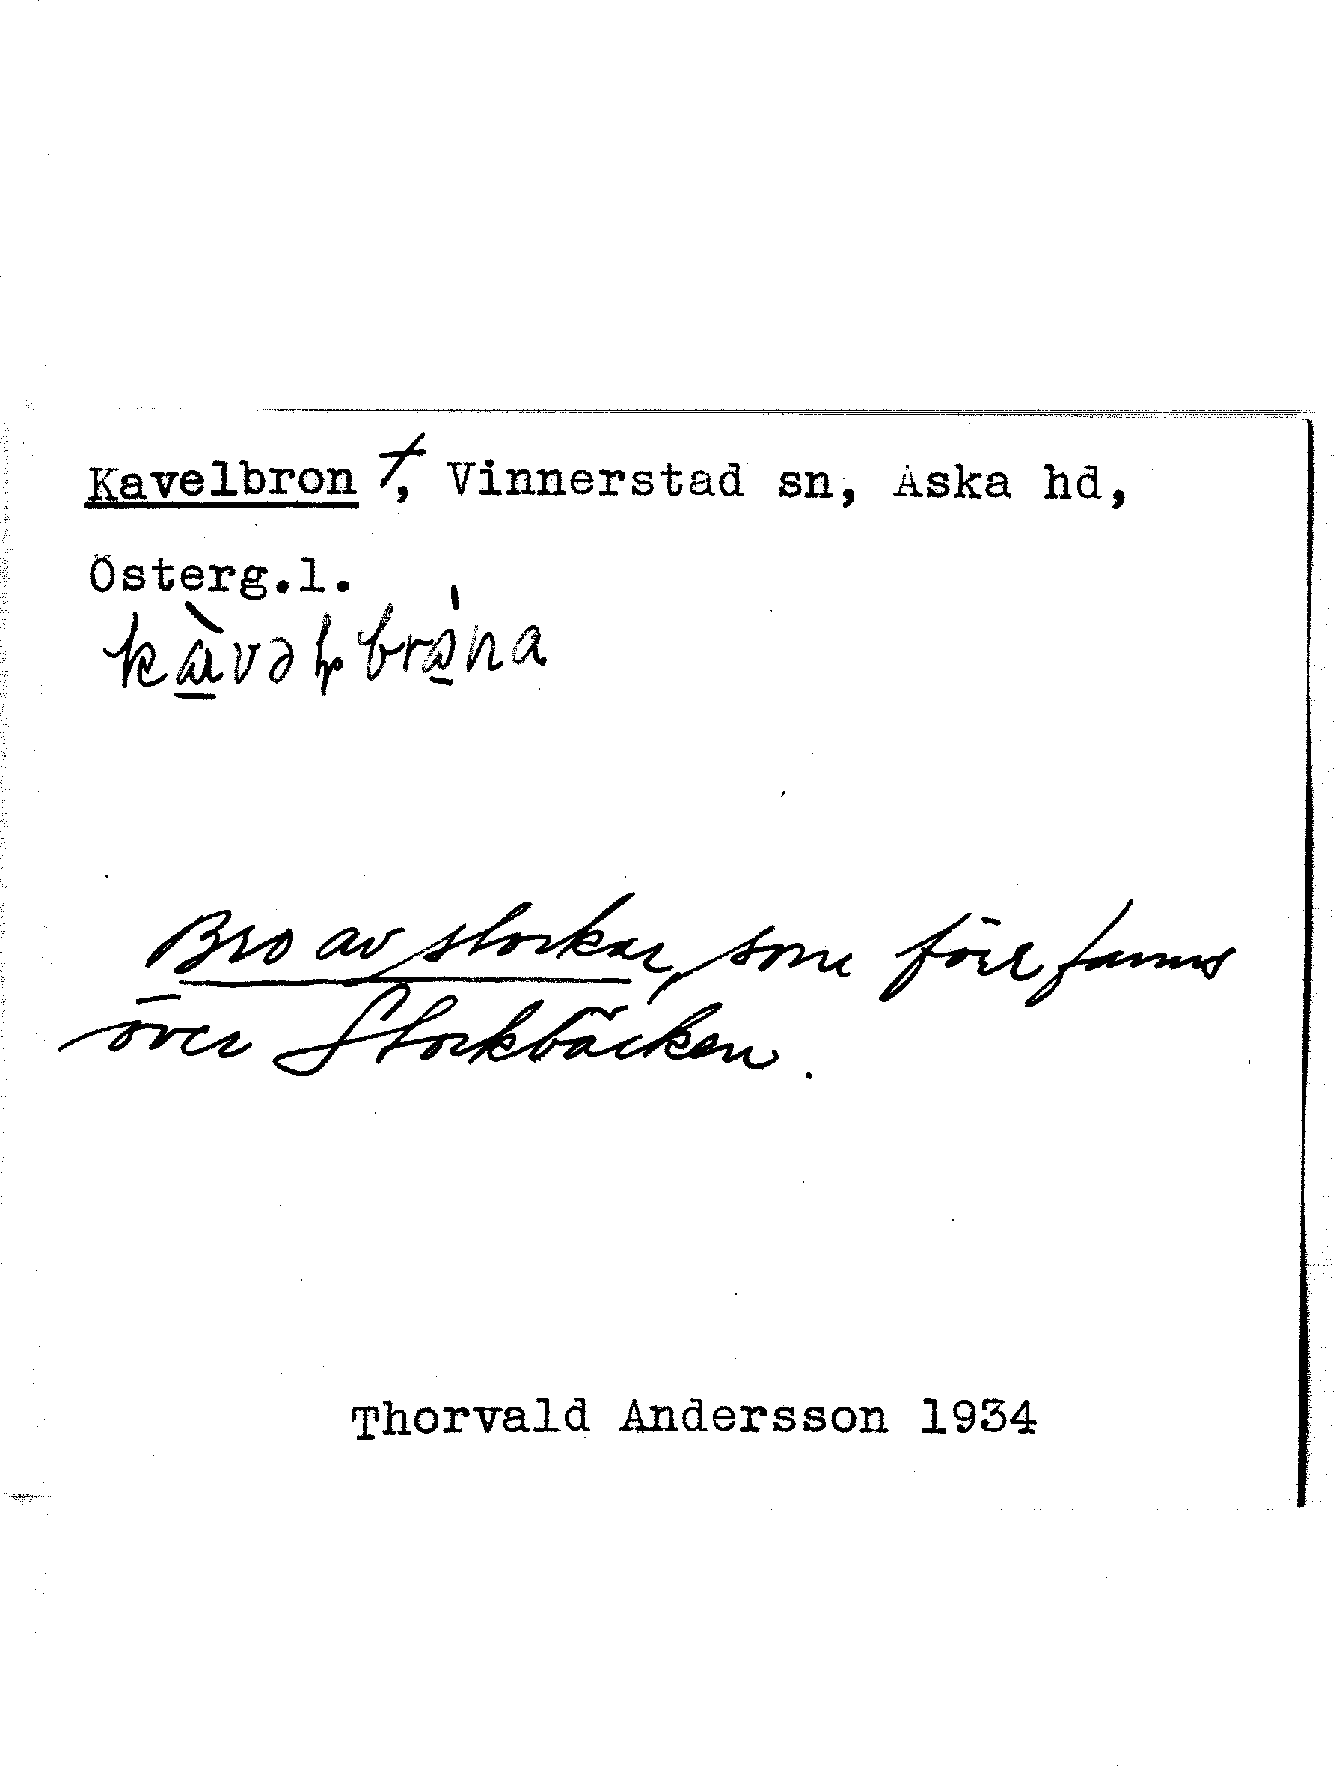 Kavelbron †, Vinnerstad sn, Aska hd,
Österg.l.
Bro av stockar, som förr fanns
över Stockbäcken.
Thorvald Andersson 1934